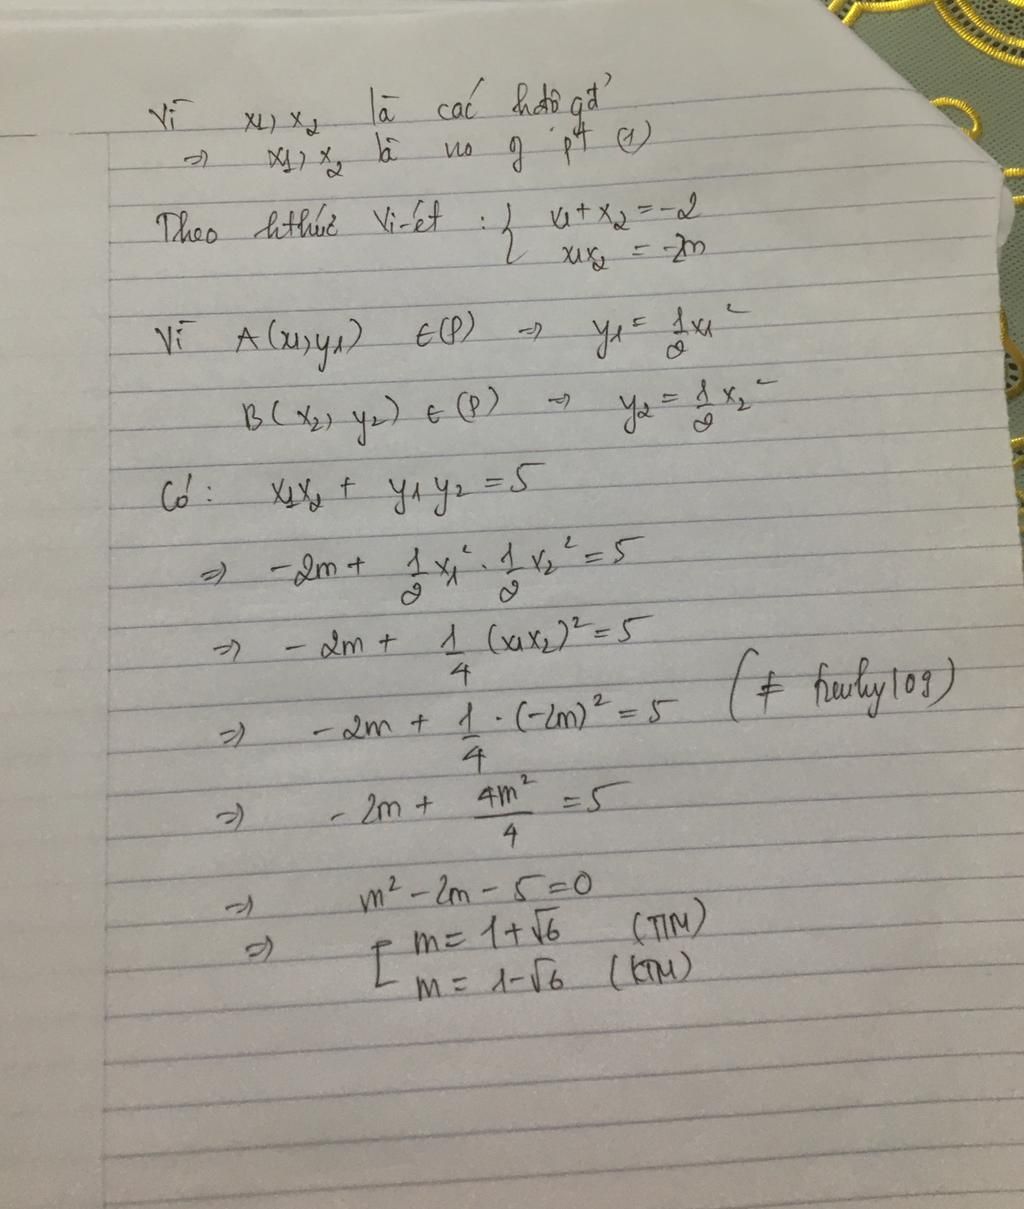 Vì x1, x2 là các hđộ gđ'
=> x1, x2 là no g pt (1)
Theo hthức Vi-ét : { x1 + x2 = -2
x1x2 = -2m
Vì A(x1, y1) ∈ (P) => y1 = 1/2 x1²
B(x2, y2) ∈ (P) => y2 = 1/2 x2²
Có: x1x2 + y1y2 = 5
=> -2m + 1/2 x1² . 1/2 x2² = 5
=> -2m + 1/4 (x1x2)² = 5
=> -2m + 1/4 . (-2m)² = 5 (≠ 109)
=> -2m + 4m²/4 = 5
=> m² - 2m - 5 = 0
=> [ m = 1+√6 (TM)
m = 1-√6 (KTM)